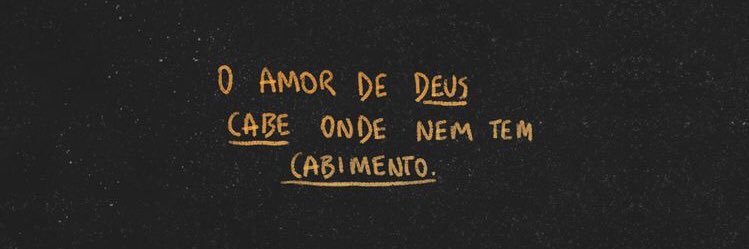 O AMOR DE DEUS
CABE ONDE NEM TEM
CABIMENTO.